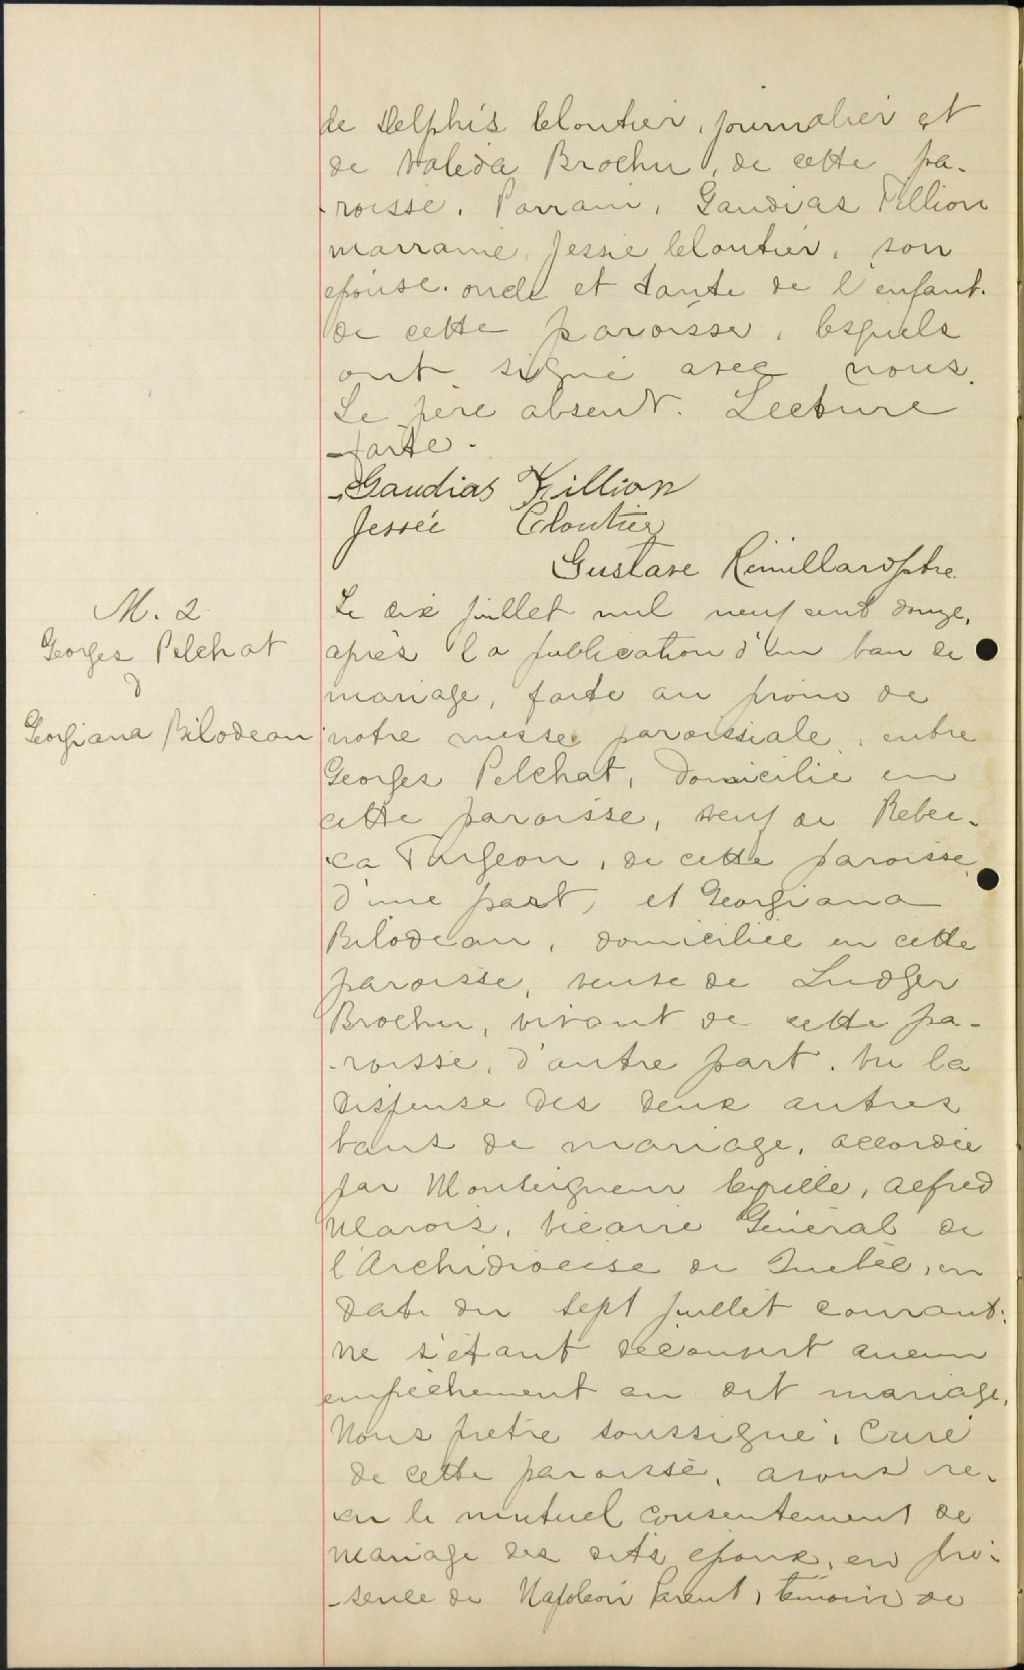 de Delphis Cloutier, journalier et
de Valéda Brochu, de cette pa-
-roisse. Parrain, Gaudias Fillion
marraine, Jessie Cloutier, son
épouse. oncle et tante de l'enfant.
de cette paroisse, lesquels
ont signé avec nous.
Le père absent. Lecture
-faite.
Gaudias Fillion
Jessée Cloutier
Gustave Rémillard ptre.
M. 2
Georges Pelchat
&
Georgiana Bilodeau
Le dix juillet mil neuf cent douze,
après la publication d'un ban de
mariage, faite au prône de
notre messe paroissiale, entre
Georges Pelchat, domicilié en
cette paroisse, veuf de Rebec-
-ca Turgeon, de cette paroisse,
d'une part, et Georgiana
Bilodeau, domiciliée en cette
paroisse, veuve de Ludger
Brochu, vivant de cette pa-
-roisse, d'autre part. Vu la
dispense des deux autres
bans de mariage, accordée
par Monseigneur Cyrille, Alfred
Marois, Vicaire Général de
l'Archidiocèse de Québec, en
date du sept juillet courant:
ne s'étant découvert aucun
empêchement au dit mariage,
Nous prêtre soussigné, Curé
de cette paroisse, avons re-
-çu le mutuel consentement de
mariage des dits époux, en pré-
-sence de Napoléon Parent, témoin de